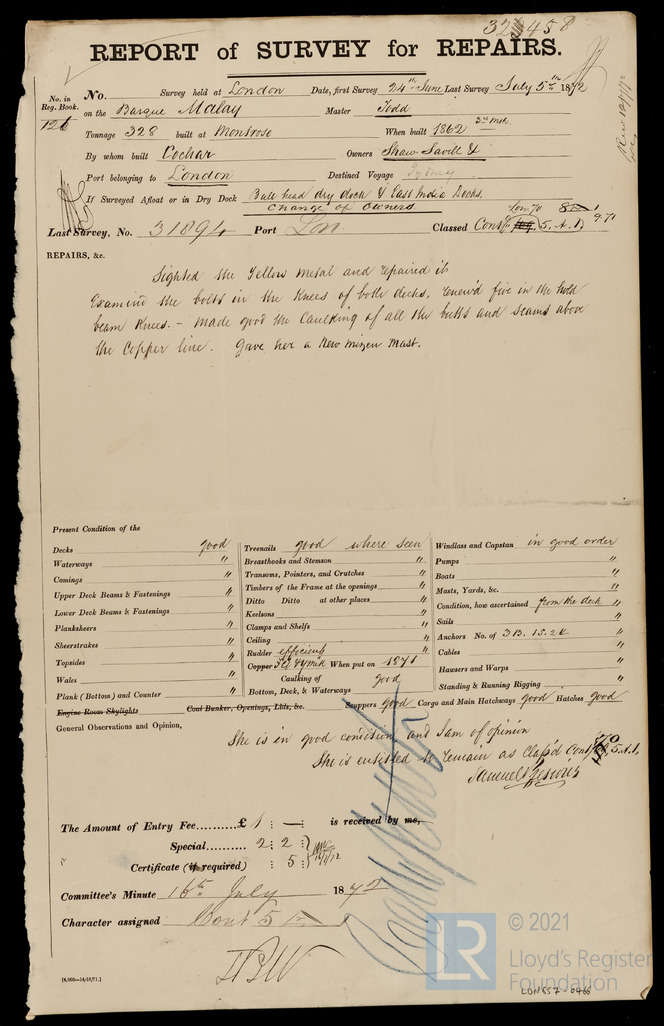 REPORT of SURVEY for REPAIRS.
No. in Reg. Book.
126
No. Survey held at London Date, first Survey 24th June Last Survey July 5th 1872
on the Barque Malay Master Todd
Tonnage 328 built at Montrose When built 1862 3rd Mth
By whom built Cochar Owners Shaw Savill &
Port belonging to London Destined Voyage Sydney
If Surveyed Afloat or in Dry Dock Bull head dry dock & East India Docks.
Change of Owners
Last Survey, No. 31894 Port Lon Classed Contd 5. A.1
Lon. 70
9.71
REPAIRS, &c.
Sighted the Yellow Metal and repaired it
Examind the bolts in the Knees of both decks, renew'd five in the hold
beam Knees. – Made good the Caulking of all the butts and seams above
the Copper line. Gave her a New Mizen Mast.
Present Condition of the
Decks good
Waterways "
Comings "
Upper Deck Beams & Fastenings "
Lower Deck Beams & Fastenings "
Planksheers "
Sheerstrakes "
Topsides "
Wales "
Plank (Bottom) and Counter "
Engine Room Skylights
Treenails good where seen
Breasthooks and Stemson "
Transoms, Pointers, and Crutches "
Timbers of the Frame at the openings "
Ditto Ditto at other places "
Keelsons "
Clamps and Shelfs "
Ceiling "
Rudder efficient
Copper When put on 1871
Caulking of good
Bottom, Deck, & Waterways "
Coal Bunker, Openings, Lids, &c.
Windlass and Capstan in good order
Pumps "
Boats "
Masts, Yards, &c. "
Condition, how ascertained from the deck "
Sails "
Anchors No. of 3B. 1S. 2K "
Cables "
Hawsers and Warps "
Standing & Running Rigging "
Scuppers good Cargo and Main Hatchways good Hatches good
General Observations and Opinion,
She is in good condition and I am of opinion
She is entitled to remain as Class'd Contd 70, 5. A.1,
The Amount of Entry Fee..........£ 1 : — : is received by me,
Special.......... 2 : 2 :
Certificate (if required) : 5 :
Committee's Minute 16th July 1872
Character assigned Cont 5
[6,000—14/10/71.]
LR
© 2021
Lloyd's Register
Foundation
LDN657-0466